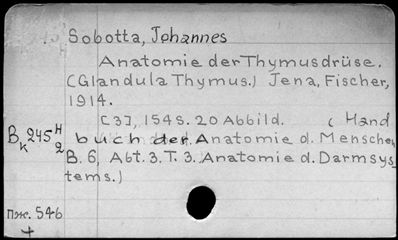 Sobotta, Johannes
Anatomie der Thymusdrüse.
(Glandula Thymus.) Jena, Fischer,
1914.
[3], 154 S. 20 Abbild. (Hand
buch der Anatomie d. Menschen
B. 6, Abt. 3. T. 3. Anatomie d. Darmsys=
tems.)
B k 245 H 2
Пж. 546
+